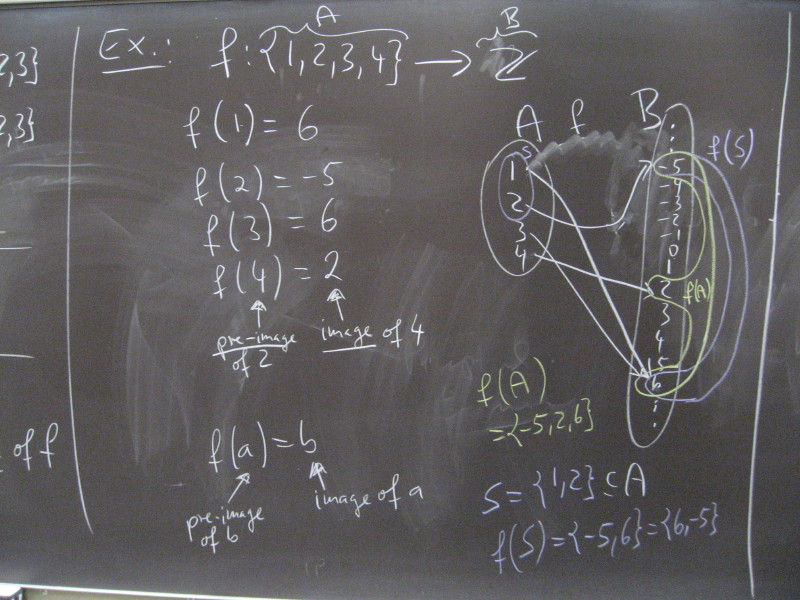 2,3}
2,3}
of f
Ex.: f: {1,2,3,4} → ℤ
A
B
f(1) = 6
f(2) = -5
f(3) = 6
f(4) = 2
pre-image of 2
image of 4
f(a) = b
pre-image of b
image of a
A f B
S
1
2
3
4
⋮
-5
-4
-3
-2
-1
0
1
2
3
4
5
6
⋮
f(S)
f(A)
f(A)
= {-5,2,6}
S = {1,2} ⊆ A
f(S) = {-5,6} = {6,-5}